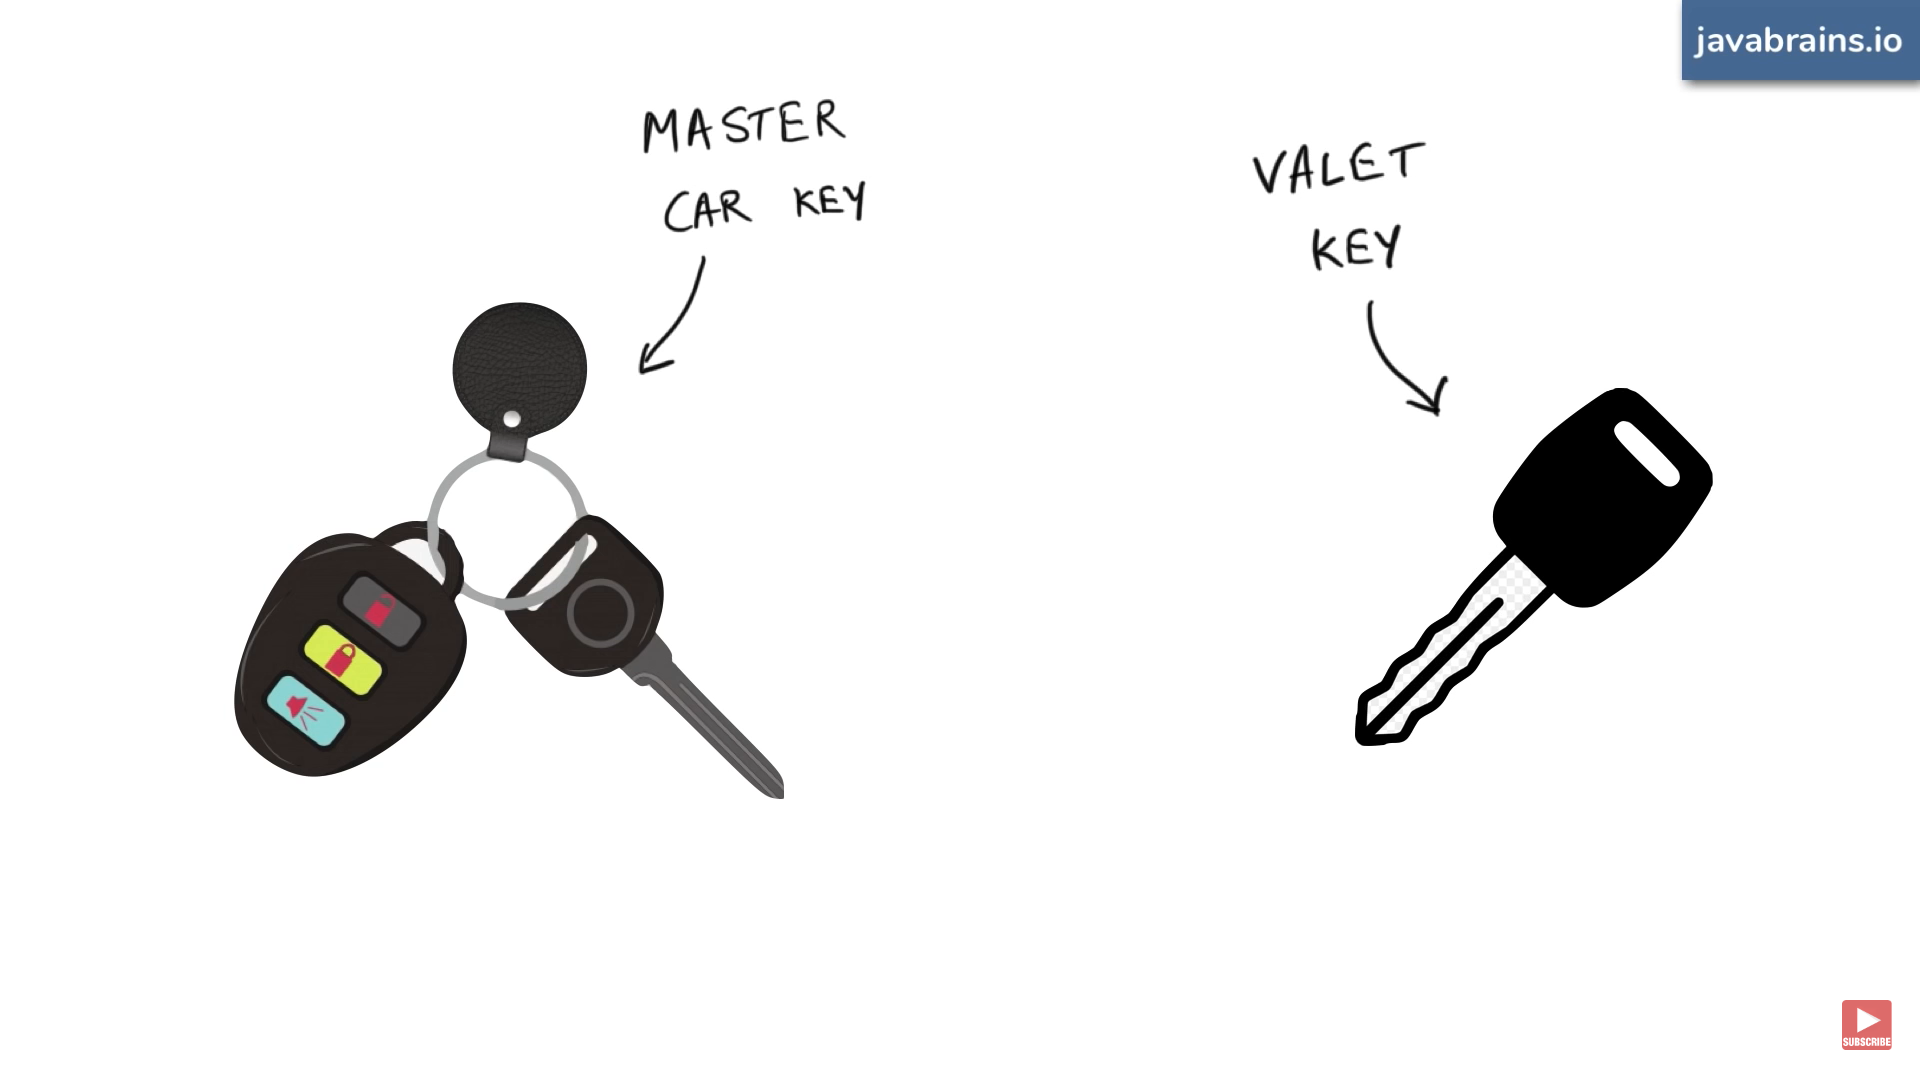 javabrains.io
MASTER
CAR KEY
VALET
KEY
SUBSCRIBE